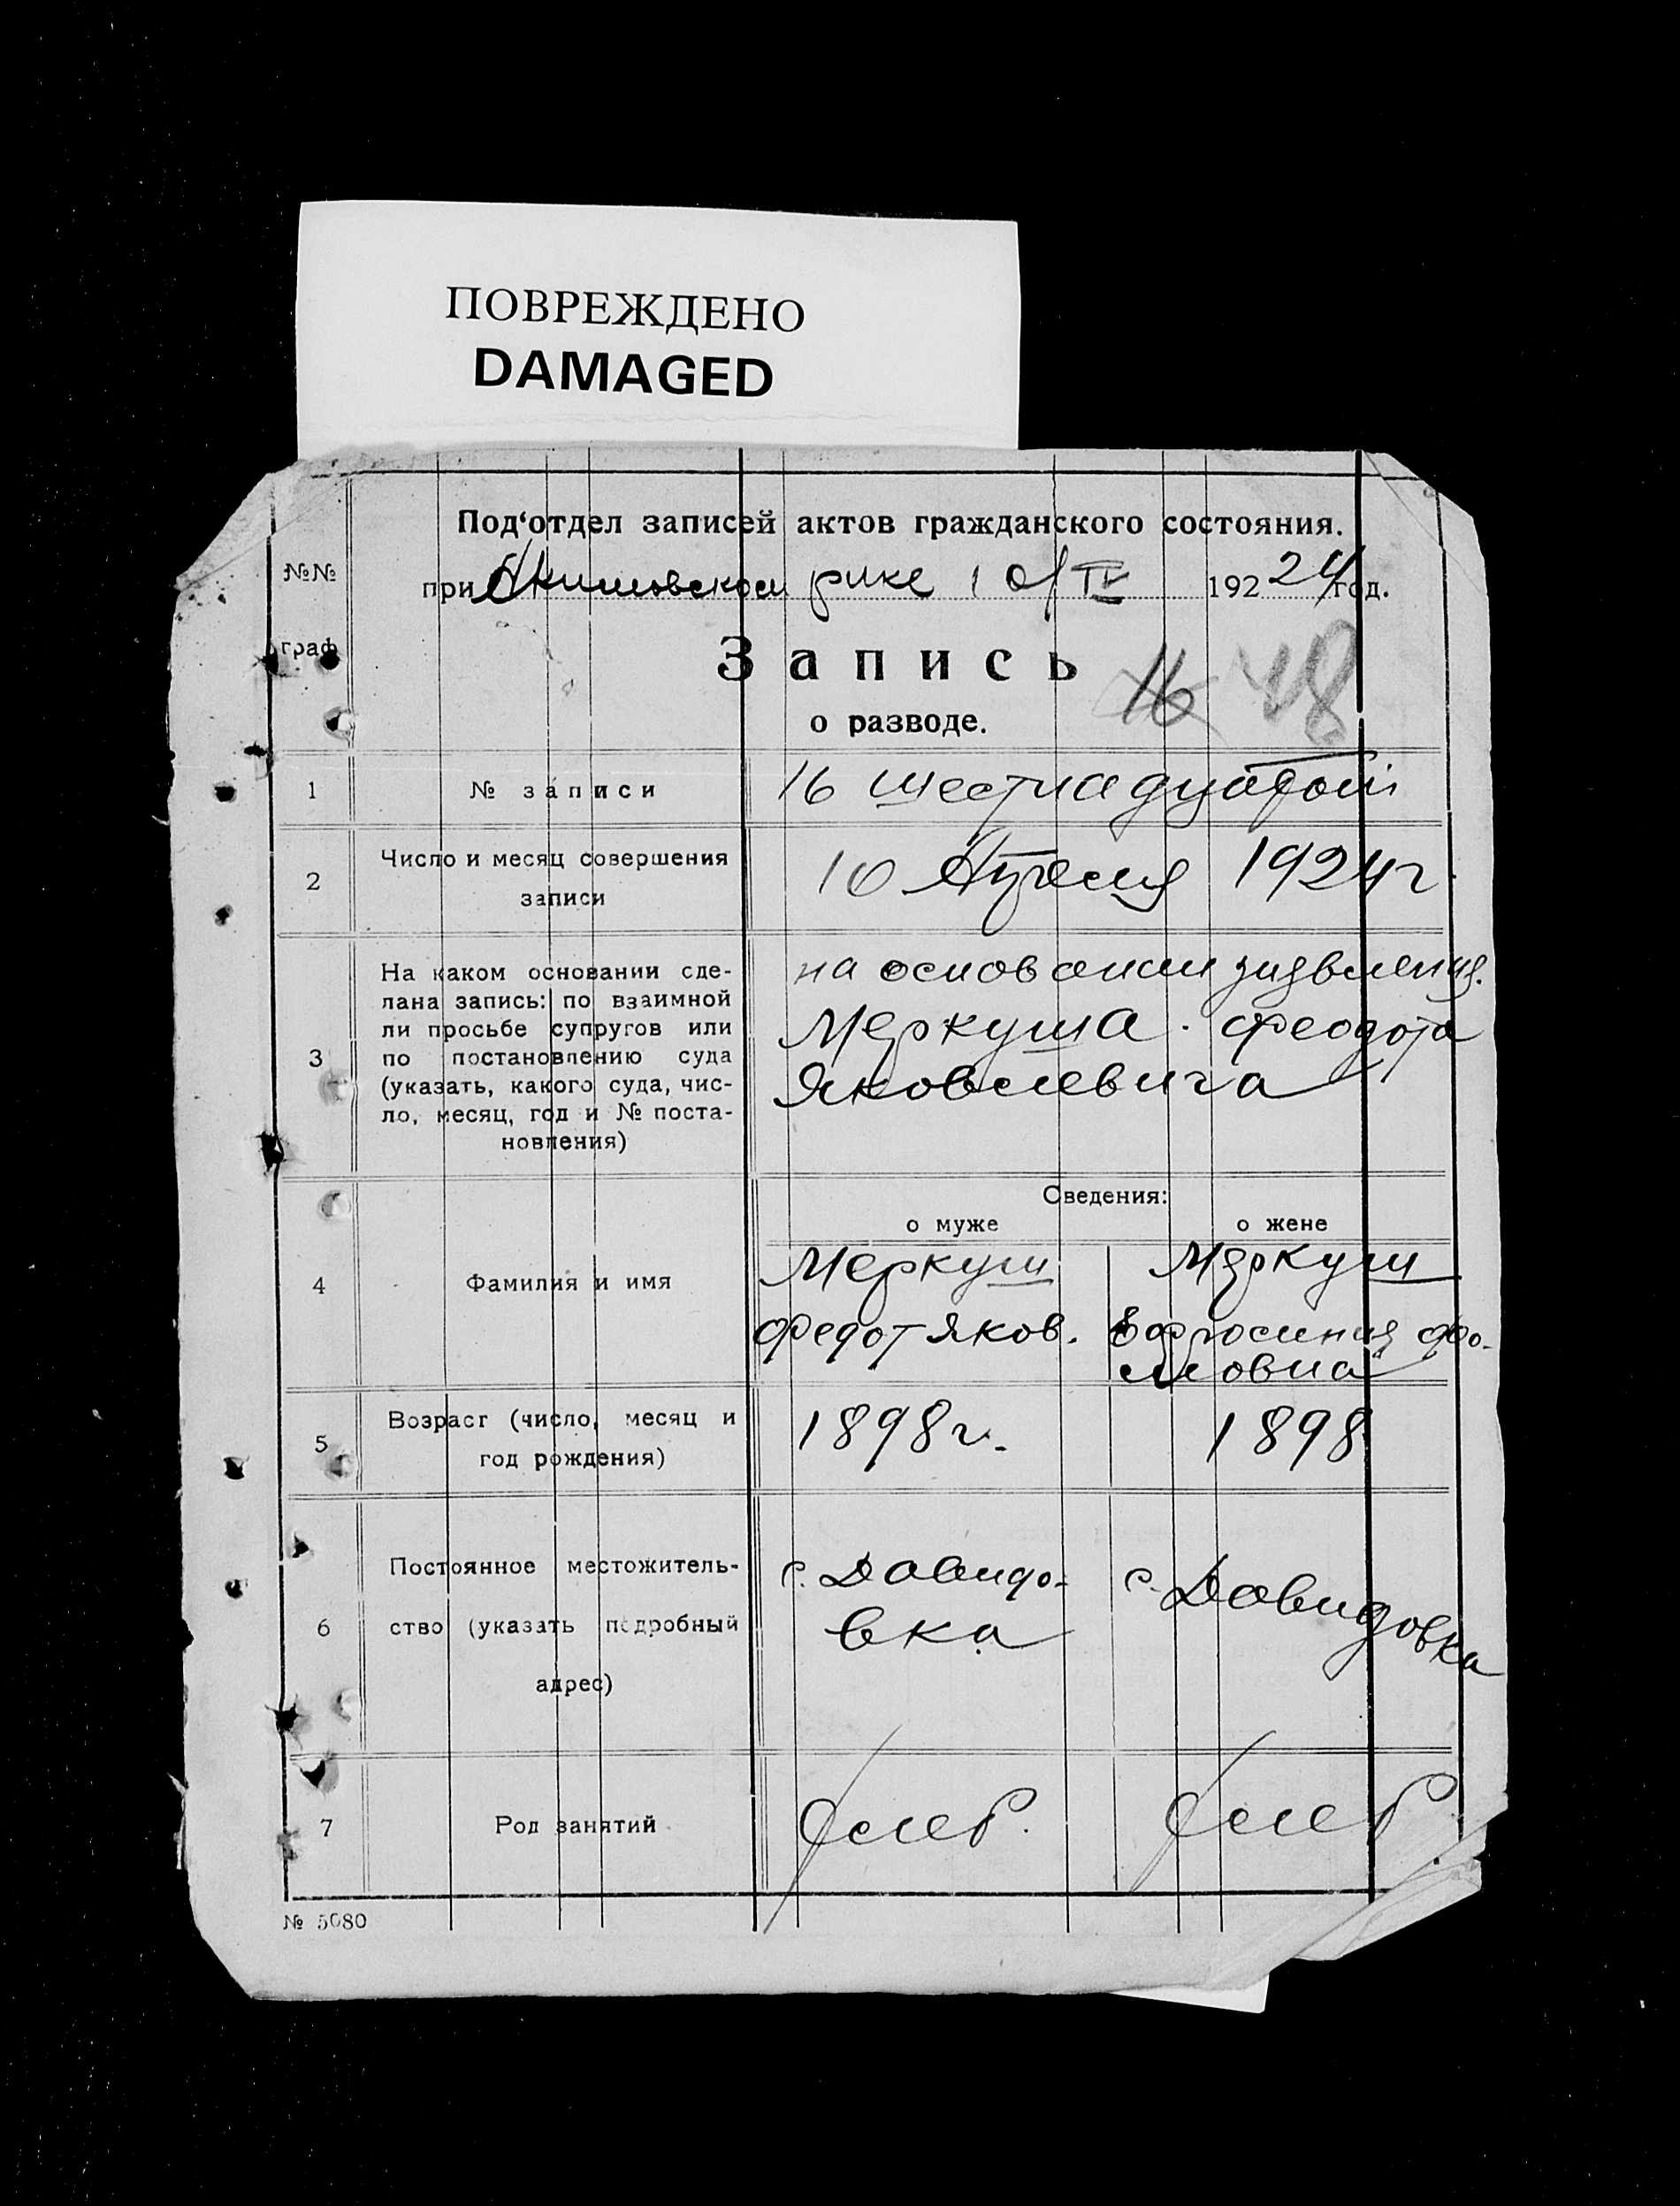 ПОВРЕЖДЕНО
DAMAGED
Под‘отдел записей актов гражданского состояния.
№№
граф
при Акимовском рике 10/IV 192 24 год.
Запись
16 48
о разводе.
1 № записи 16 шестнадцатой
2 Число и месяц совершения
записи
10 Апреля 1924 г
3 На каком основании сде-
лана запись: по взаимной
ли просьбе супругов или
по постановлению суда
(указать, какого суда, чис-
ло, месяц, год и № поста-
новления)
на основании заявления
Меркуша Феодота
Яковлевича
Сведения:
о муже о жене
4 Фамилия и имя
Меркуш
Федот Яков.
Меркуш
Ефросиния Фо-
мовна
5 Возраст (число, месяц и
год рождения)
1898 г. 1898
6 Постоянное местожитель-
ство (указать подробный
адрес)
с. Давидо-
вка
с. Давидовка
7 Род занятий
хлеб. хлеб
№ 5080